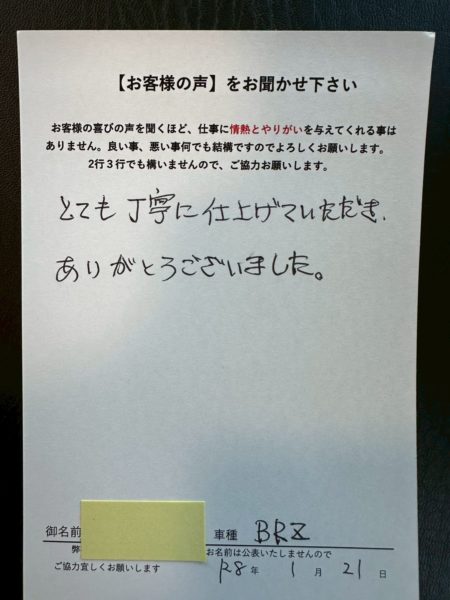 【お客様の声】をお聞かせ下さい
お客様の喜びの声を聞くほど、仕事に情熱とやりがいを与えてくれる事は
ありません。良い事、悪い事何でも結構ですのでよろしくお願いします。
2行3行でも構いませんので、ご協力お願いします。
とても丁寧に仕上げていただき、
ありがとうございました。
御名前 車種 BRZ
弊 お名前は公表いたしませんので
ご協力宜しくお願いします R8年 1月 21日